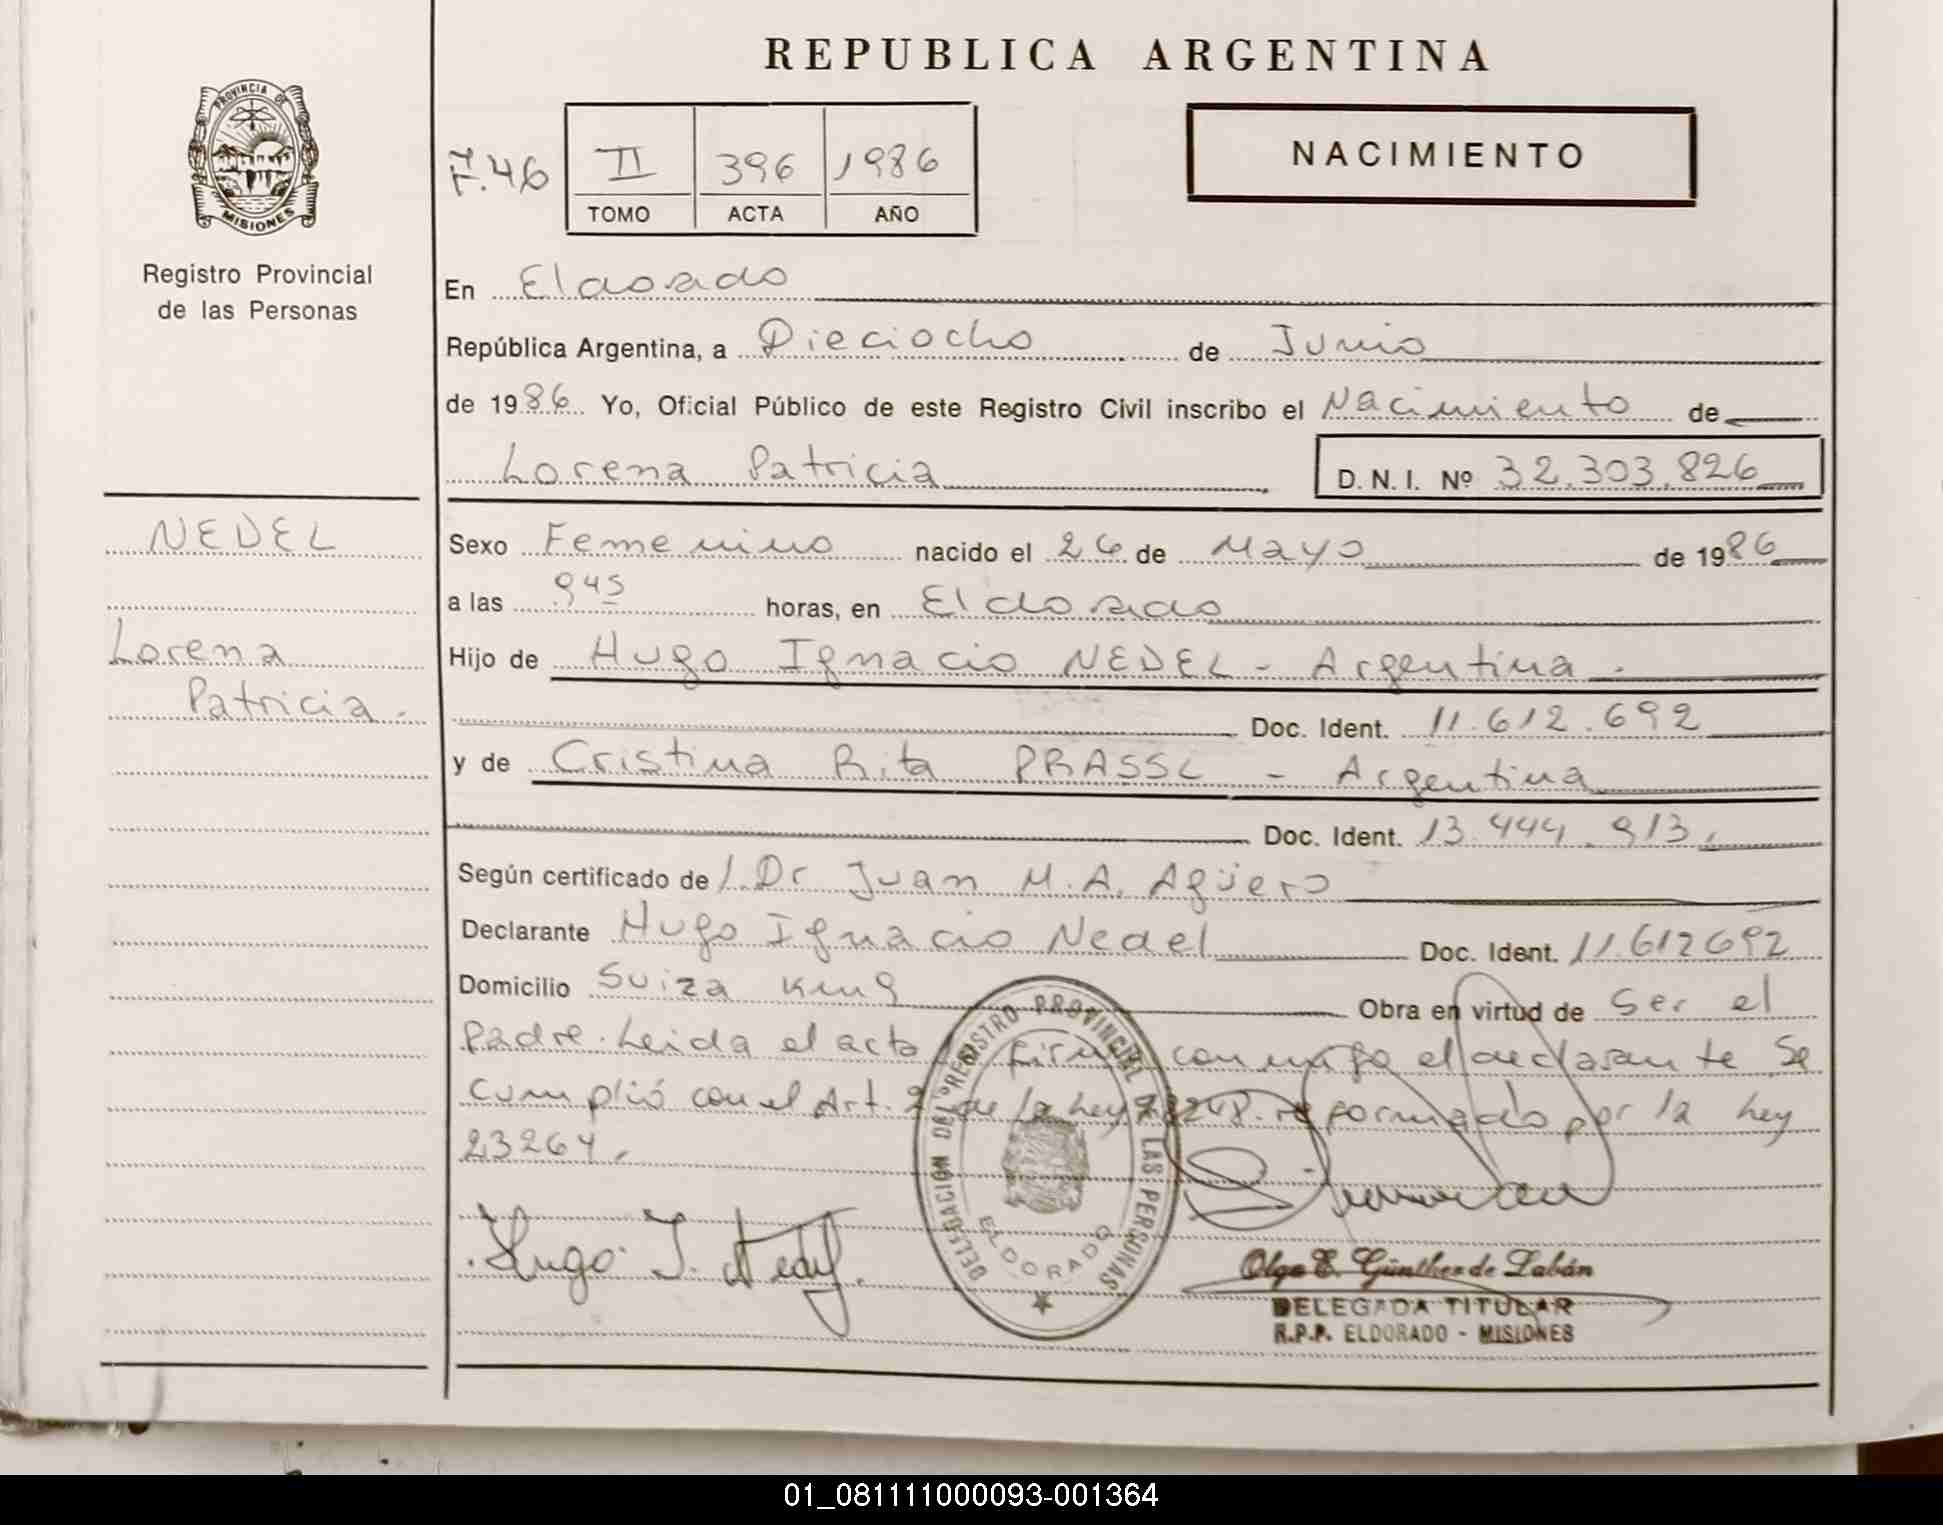 REPUBLICA ARGENTINA
PROVINCIA DE
MISIONES
Registro Provincial
de las Personas
F.46
II
396
1986
TOMO
ACTA
AÑO
NACIMIENTO
En Eldorado
República Argentina, a Dieciocho de Junio
de 1986 Yo, Oficial Público de este Registro Civil inscribo el Nacimiento de
Lorena Patricia
D.N.I. Nº 32.303.826
NEDEL
Lorena
Patricia.
Sexo Femenino nacido el 26 de Mayo de 1986
a las 945 horas, en Eldorado
Hijo de Hugo Ignacio NEDEL - Argentina.
Doc. Ident. 11.612.692
y de Cristina Rita PRASSL - Argentina
Doc. Ident. 13.444.913.
Según certificado de / Dr Juan M.A. Agüero
Declarante Hugo Ignacio Nedel Doc. Ident. 11.612692
Domicilio Suiza km 9 Obra en virtud de Ser el
Padre. Leida el acta firma conmigo el declarante Se
Cumplió con el Art. 2 de la Ley 18248 reformado por la Ley
23264.
DELEGACION DEL REGISTRO PROVINCIAL DE LAS PERSONAS
ELDORADO
Hugo I. Nedel.
Olga E. Günther de Labán
DELEGADA TITULAR
R.P.P. ELDORADO - MISIONES
01_081111000093-001364